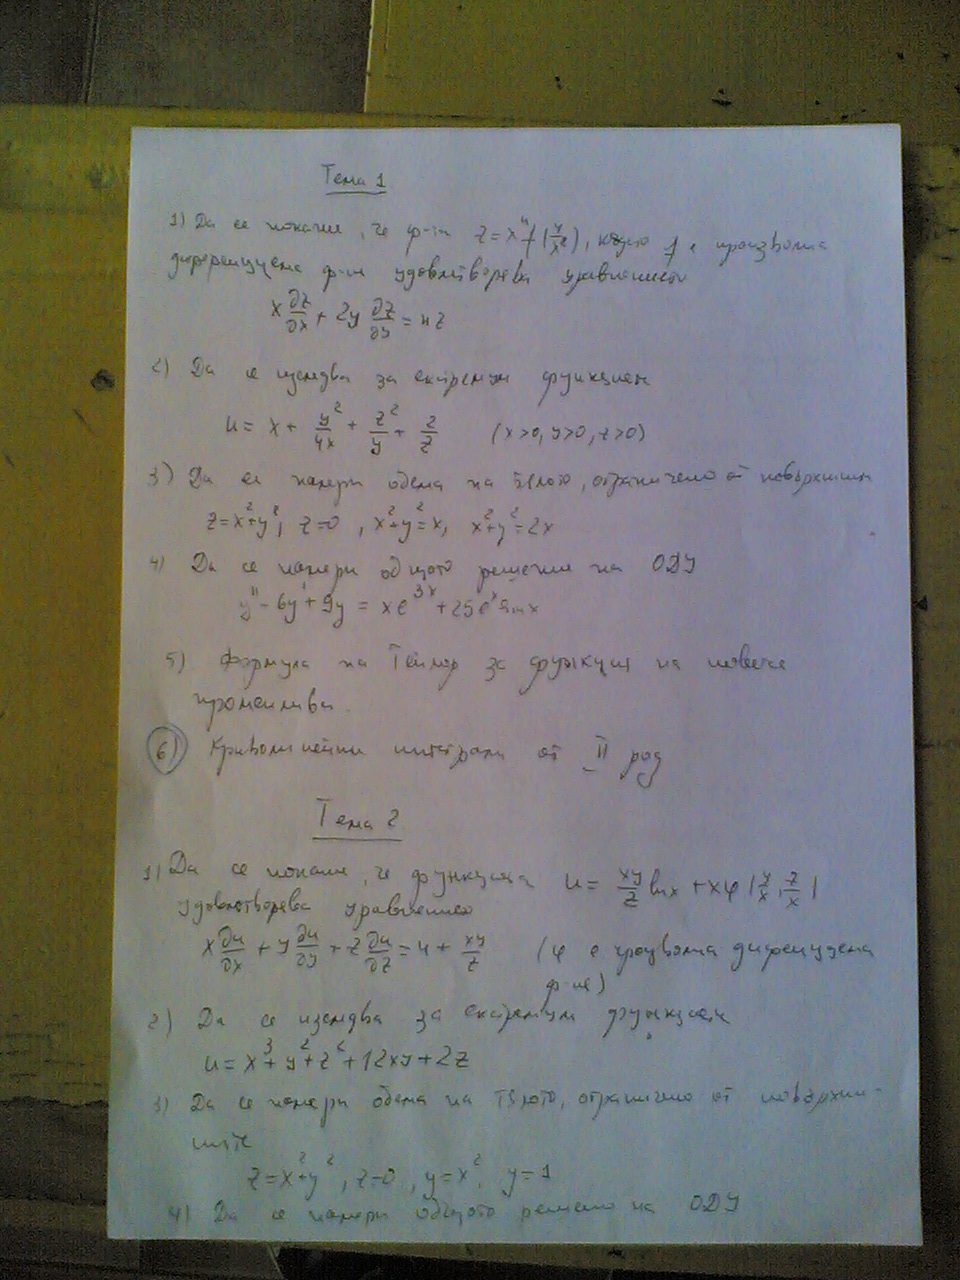 Тема 1
1) Да се покаже, че ф-та z = xⁿ f(y/x²), където f е произволна
диференцуема ф-ия удовлетворява уравнението
x ∂z/∂x + 2y ∂z/∂y = nz
2) Да се изследва за екстремум функцията
u = x + y²/4x + z²/y + 2/z (x>0, y>0, z>0)
3) Да се намери обема на тялото, ограничено от повърхнини
z = x²+y², z=0, x²+y²=x, x²+y²=2x
4) Да се намери общото решение на ОДУ
y'' - 6y' + 9y = xe³ˣ + 25eˣ sin x
5) Формула на Тейлор за функция на повече
променливи.
6) Криволинейни интеграли от II род
Тема 2
1) Да се покаже, че функцията u = xy/z ln x + xφ(y/x, z/x)
удовлетворява уравнението
x ∂u/∂x + y ∂u/∂y + z ∂u/∂z = u + xy/z (φ е произволна
ф-ия)
2) Да се изследва за екстремум функцията
u = x³ + y² + z² + 12xy + 2z
3) Да се намери обема на тялото, ограничено от повърхни-
ните
z = x²+y², z=0, y=x², y=1
4) Да се намери общото решение на ОДУ